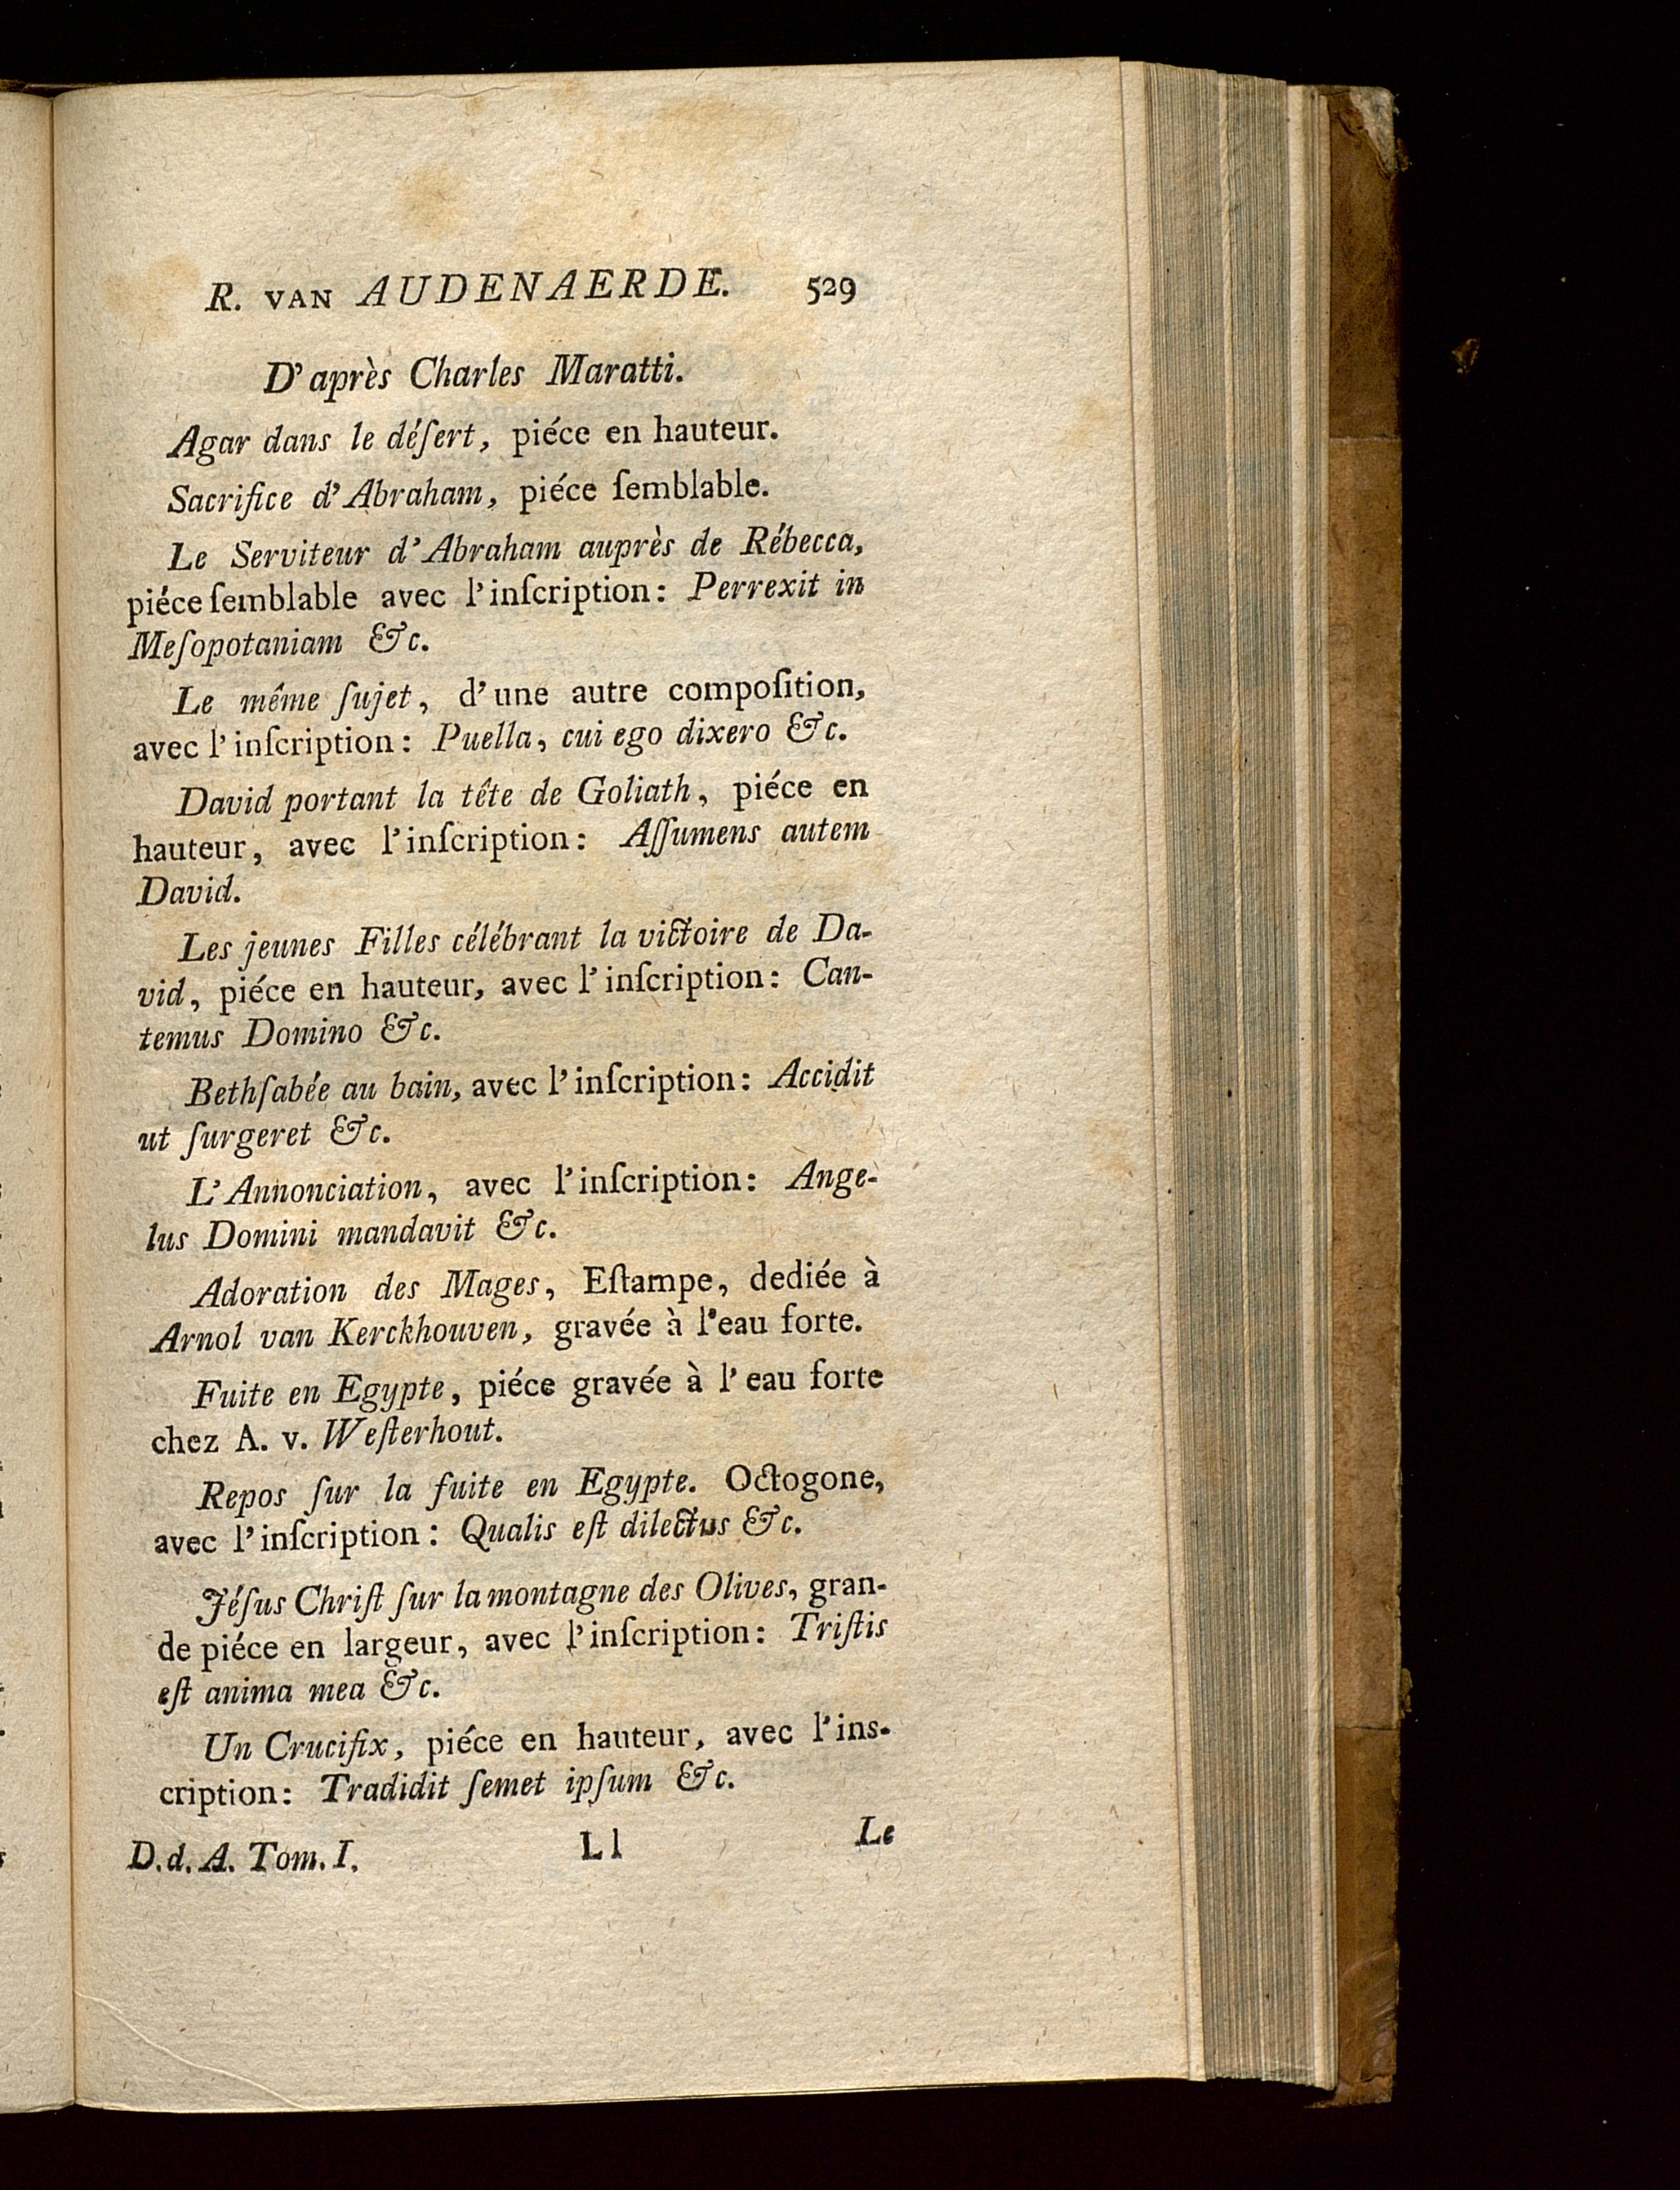 R. VAN AUDENAERDE. 529
D'après Charles Maratti.
Agar dans le déſert, piéce en hauteur.
Sacrifice d'Abraham, piéce ſemblable.
Le Serviteur d'Abraham auprès de Rébecca,
piéce ſemblable avec l'inſcription: Perrexit in
Meſopotaniam &c.
Le même ſujet, d'une autre compoſition,
avec l'inſcription: Puella, cui ego dixero &c.
David portant la tête de Goliath, piéce en
hauteur, avec l'inſcription: Aſſumens autem
David.
Les jeunes Filles célébrant la victoire de Da-
vid, piéce en hauteur, avec l'inſcription: Can-
temus Domino &c.
Bethſabée au bain, avec l'inſcription: Accidit
ut ſurgeret &c.
L'Annonciation, avec l'inſcription: Ange-
lus Domini mandavit &c.
Adoration des Mages, Eſtampe, dediée à
Arnol van Kerckhouven, gravée à l'eau forte.
Fuite en Egypte, piéce gravée à l'eau forte
chez A. v. Weſterhout.
Repos ſur la fuite en Egypte. Octogone,
avec l'inſcription: Qualis eſt dilectus &c.
Jéſus Chriſt ſur la montagne des Olives, gran-
de piéce en largeur, avec l'inſcription: Triſtis
eſt anima mea &c.
Un Crucifix, piéce en hauteur, avec l'ins-
cription: Tradidit ſemet ipſum &c.
D. d. A. Tom. I. Ll Le